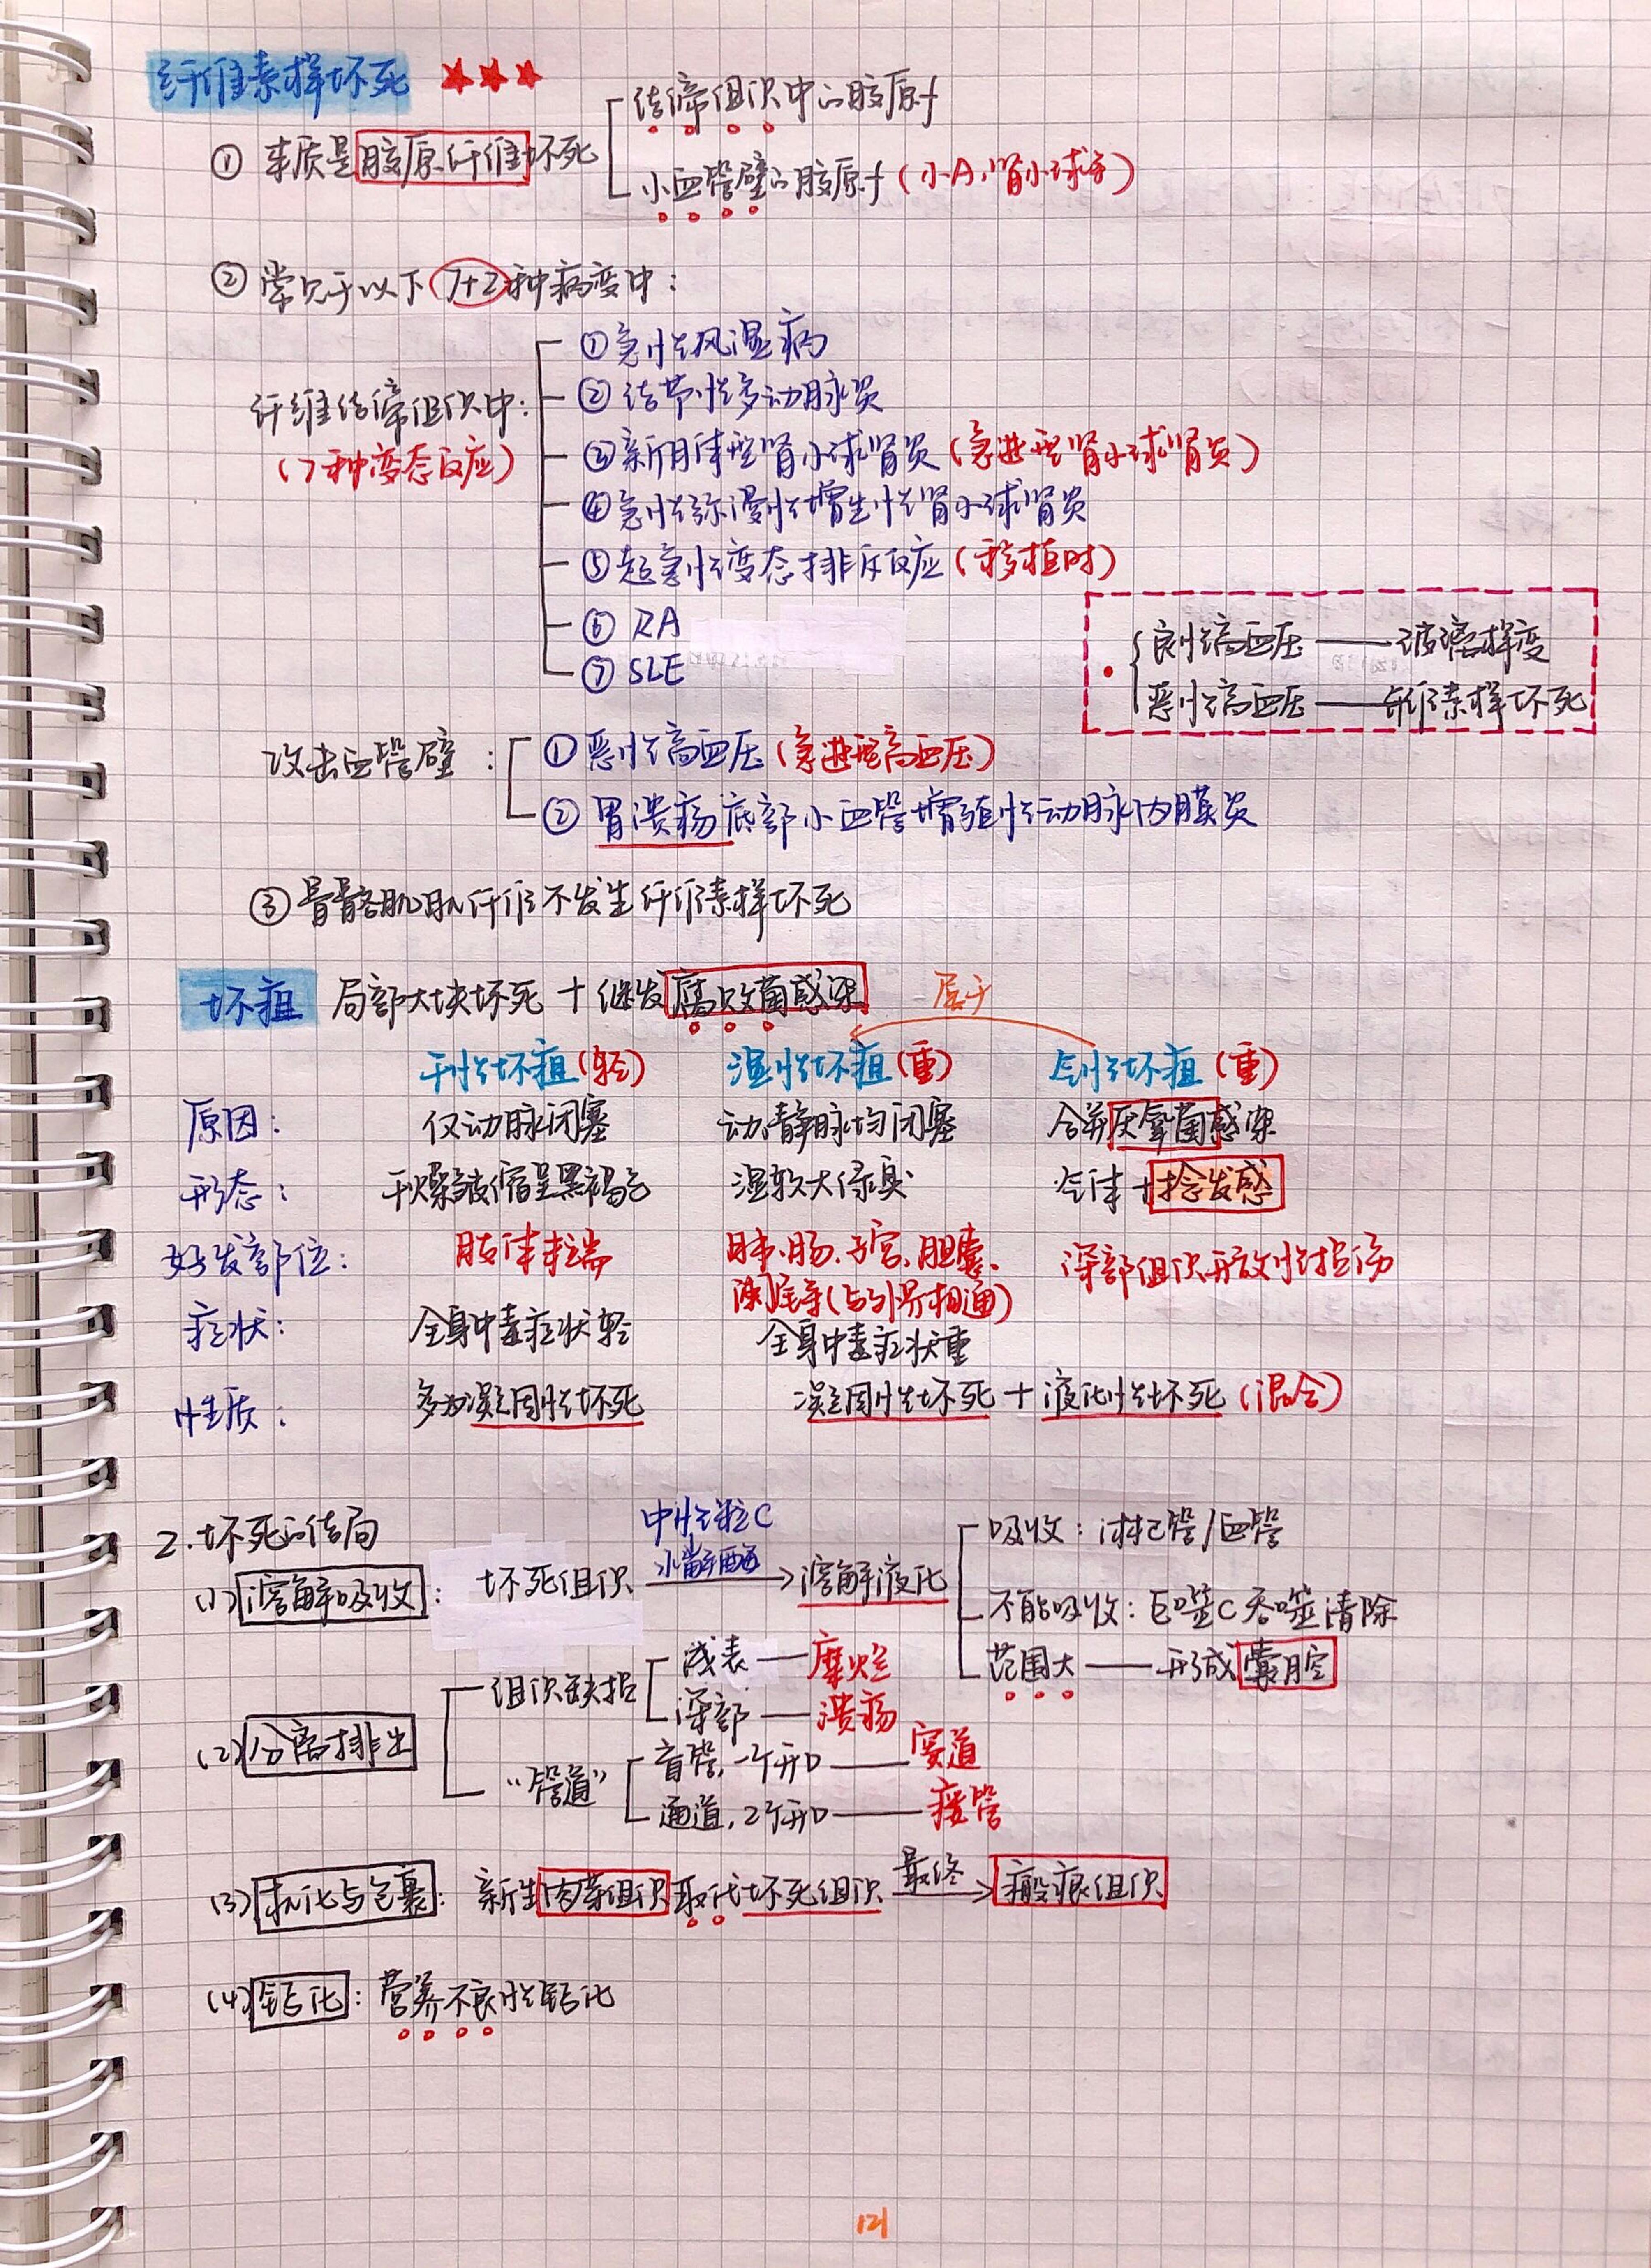 纤维素样坏死 ★★★
① 本质是胶原纤维坏死
结缔组织中的胶原f
小血管壁的胶原f (小A、肾小球等)
② 常见于以下 7+2 种病变中：
纤维结缔组织中：
(7种变态反应)
①急性风湿病
②结节性多动脉炎
③新月体型肾小球肾炎 (急进型肾小球肾炎)
④急性弥漫性增生性肾小球肾炎
⑤超急性变态排斥反应 (移植时)
⑥ RA
⑦ SLE
良性高血压 —— 玻璃样变
恶性高血压 —— 纤维素样坏死
攻击血管壁：
① 恶性高血压 (急进型高血压)
② 胃溃疡底部小血管增殖性动脉内膜炎
③ 骨骼肌肌纤维不发生纤维素样坏死
坏疽 局部大块坏死 + 继发腐败菌感染
属于
干性坏疽(轻) 湿性坏疽(重) 气性坏疽(重)
原因： 仅动脉闭塞 动、静脉均闭塞 合并厌氧菌感染
形态： 干燥皱缩呈黑褐色 湿软大绿臭 气体+捻发感
好发部位： 肢体末端 肺、肠、子宫、胆囊、 深部组织开放性损伤
阑尾等(与外界相通)
症状： 全身中毒症状轻 全身中毒症状重
性质： 多为凝固性坏死 凝固性坏死 + 液化性坏死 (混合)
2. 坏死的结局
(1) 溶解吸收： 坏死组织 中性粒C 水解酶 → 溶解液化
吸收：淋巴管/血管
不能吸收：巨噬C吞噬清除
范围大 —— 形成囊腔
(2) 分离排出
组织缺损
浅表 — 糜烂
深部 — 溃疡
“管道”
盲管，一个开口 —— 窦道
通道，2个开口 —— 瘘管
(3) 机化与包裹： 新生肉芽组织取代坏死组织 最终 → 瘢痕组织
(4) 钙化： 营养不良性钙化
121